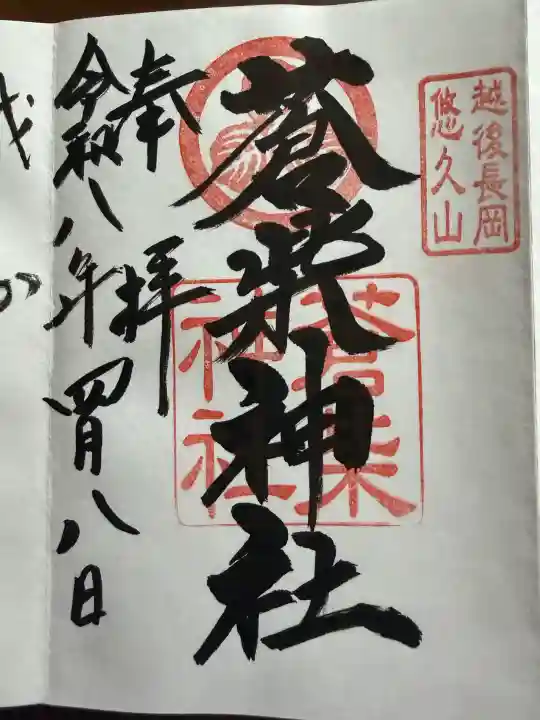 越後長岡
悠久山
蒼柴神社
蒼柴
神社
奉拝
令和八年四月八日